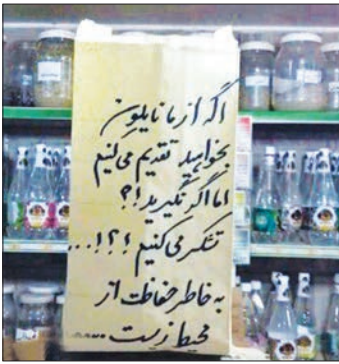 اگر از ما نایلون
بخواهید تقدیم می‌کنیم
اما اگر نگیرید!؟
تشکر می‌کنیم!؟!...
به خاطر حفاظت از
محیط زیست.....